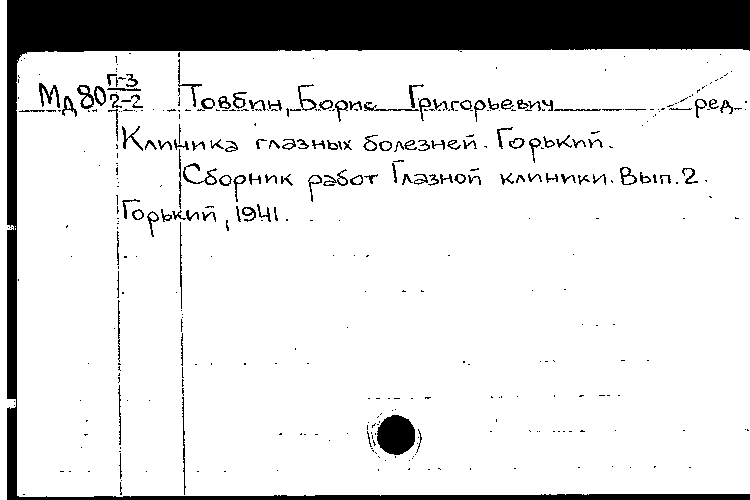 Мд80 П-3/2-2 Товбин, Борис Григорьевич ред.
Клиника глазных болезней. Горький.
Сборник работ Глазной клиники. Вып. 2.
Горький, 1941.